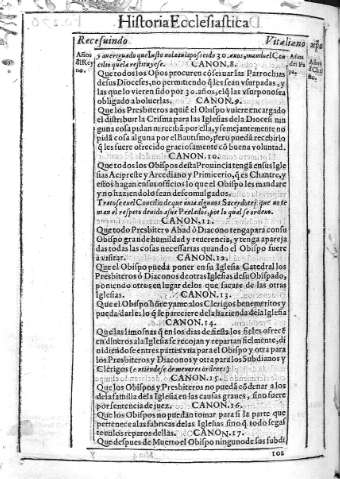 Historia Ecclesiastica
Recesuindo Vitaliano
Años del Rey no.
y aueriguado que Iusto no la aya posseedo 30. años, manda el Concilio que la restituya se.
CANON. 8.
Que todos los Opos procuren cõseruar las Parrochias
de sus Dioceses, no permitiendo q̃ les sean vsurpadas, y
las que lo vieren sido por 30. años, el q̃ las vsurpo no sea
obligado a boluerlas. CANON. 9.
Que los Presbiteros a quiẽ el Obispo vuiere encargado
el distribuir la Crisma para las Iglesias de la Diocesi nin
guna cosa pidan ni recibã por ella, y semejantemente no
pidã cosa alguna por el Bautismo, pero pueda recibir lo
q̃ les fuere ofrecido graciosamente cõ buena voluntad.
CANON. 10.
Que todos los Obispos desta Prouincia tengã en sus Igle
sias Acipreste y Arcediano y Primicerio, q̃ es Chantre, y
estos hagan en sus officios lo que el Obispo les mandare
y no haziendolo sean descomulgados.
Trato se en el Concilio de que auia algunos Sacerdotes que no te
man el respeto deuido a sus Prelados, por lo qual se ordeno.
CANON. 11.
Que todo Presbitero Abad ò Diacono tenga para con su
Obispo grande humildad y reuerencia, y tenga apareja
das todas las cosas necessarias quando el Obispo fuere
a visitar. CANON. 12.
Que el Obispo pueda poner en su Iglesia Catedral los
Presbiteros ò Diaconos de otras Iglesias de su Obispado,
poniendo otros en lugar de los que sacare de las otras
Iglesias. CANON. 13.
Que el Obispo honre y ame a los Clerigos benemeritos y
pueda darles lo q̃ le pareciere de la hazienda de la Iglesia
CANON. 14.
Que las limosnas q̃ en los dias de fiesta los fieles ofrecẽ
en dineros a la Iglesia se recojan y repartan fielmente, di
uidiendo se en tres partes vna para el Obispo y otra para
los Presbiteros y Diaconos y otra para los Subdianos y
Clerigos (entiendese de menores ordenes)
CANON. 15.
Que los Obispos y Presbiteros no puedã cõdenar a los
de la familia de la Iglesia en las causas graues, sino fuere
por sentencia de juez. CANON. 16.
Que los Obispos no puedan tomar para si la parte que
pertenece a las fabricas de las Iglesias sino q̃ todo se gas
te en los reparos dellas. CANON. 17.
Que despues de Muerto el Obispo ninguno de sus subdi
102